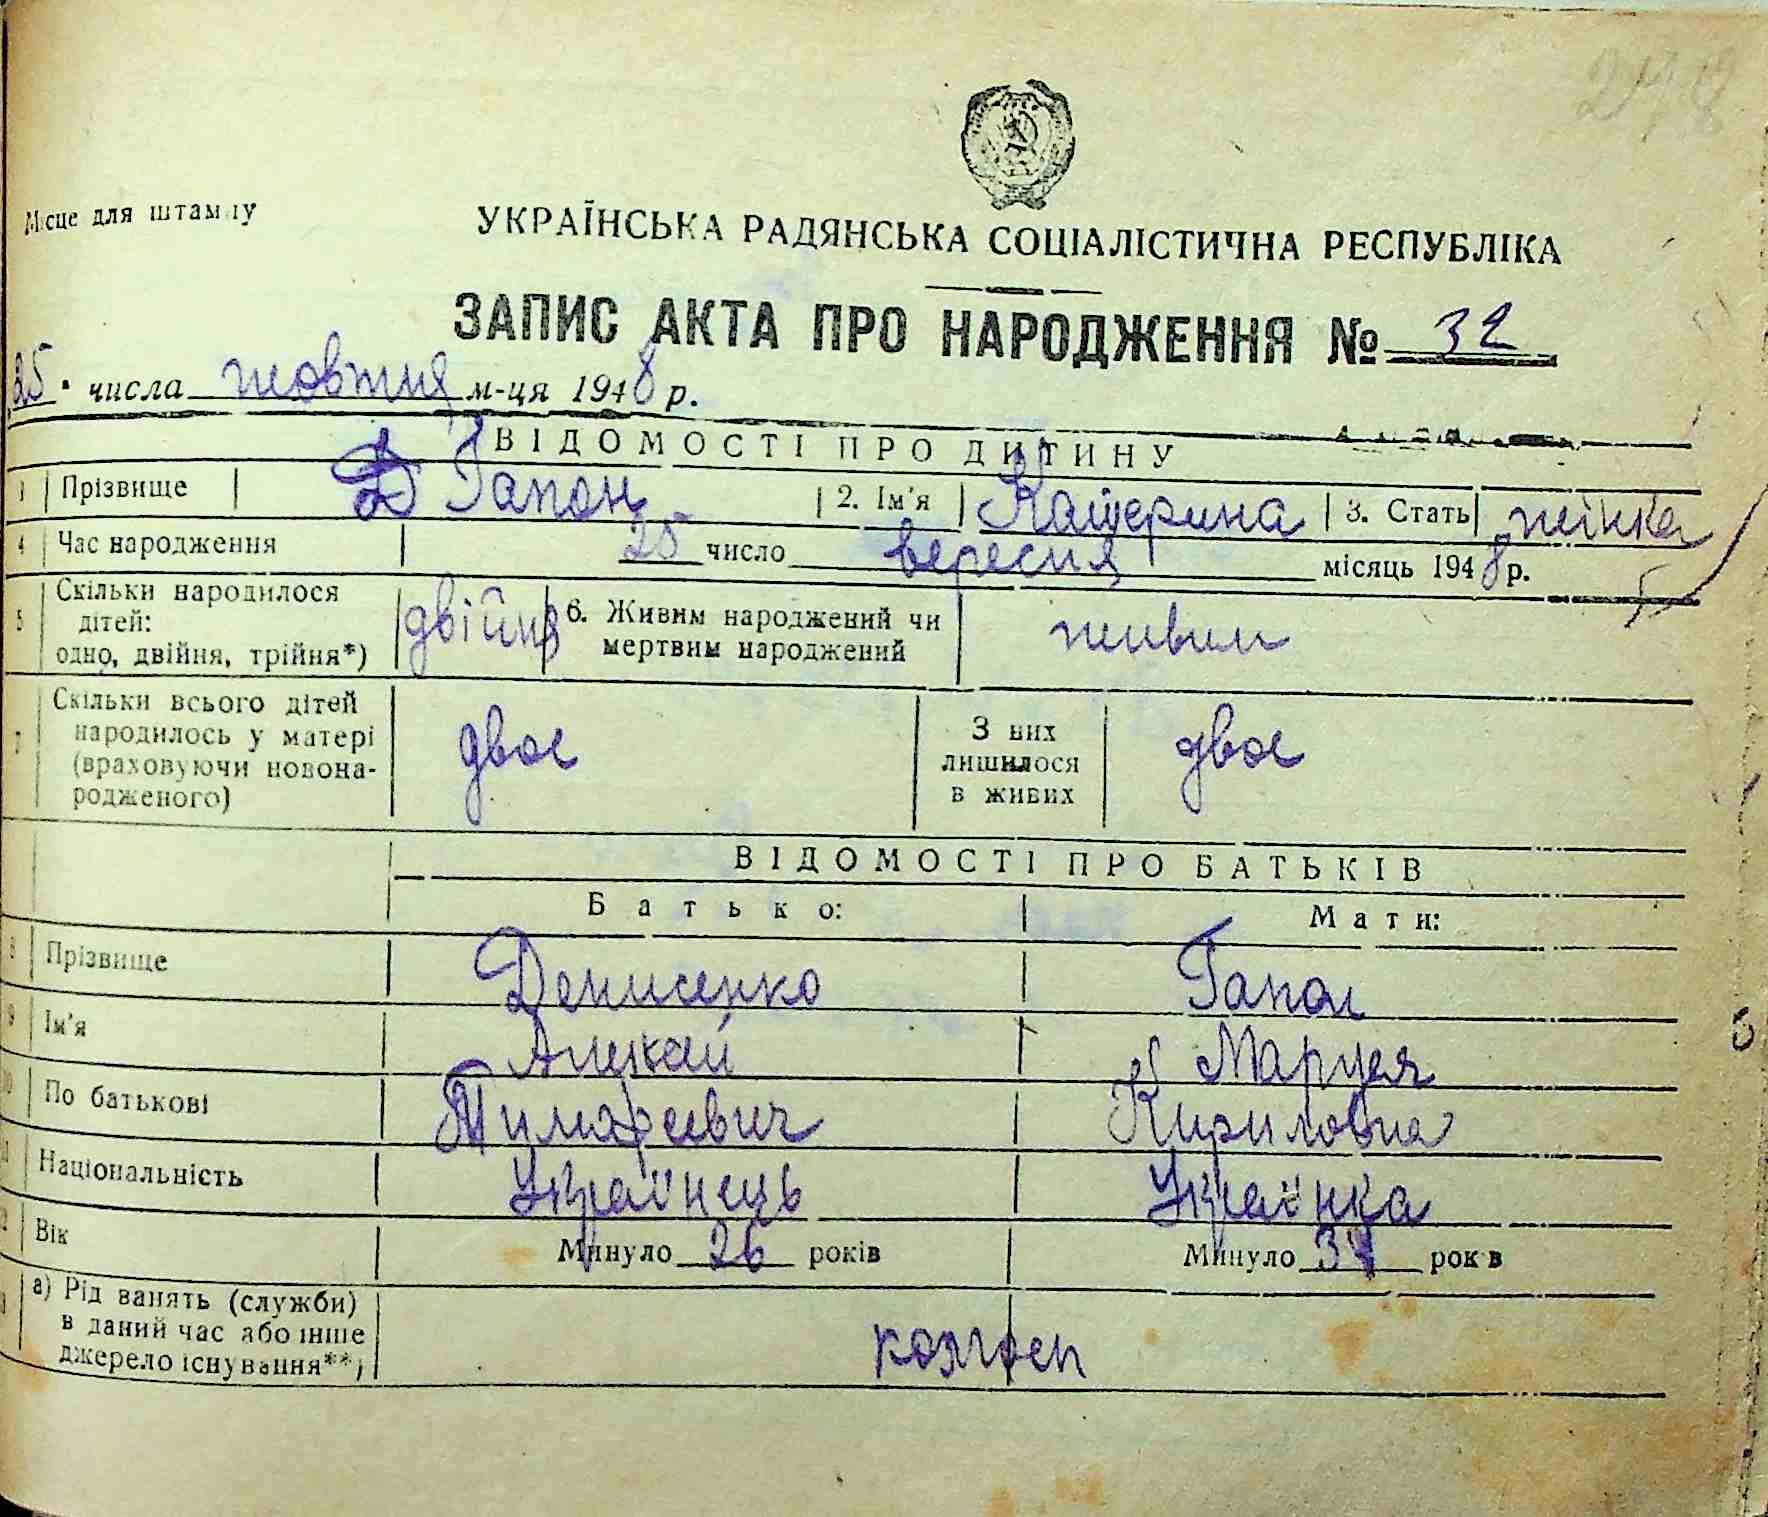 248
Місце для штампу
УКРАЇНСЬКА РАДЯНСЬКА СОЦІАЛІСТИЧНА РЕСПУБЛІКА
ЗАПИС АКТА ПРО НАРОДЖЕННЯ № 32
25 числа жовтня м-ця 1948 р.
ВІДОМОСТІ ПРО ДИТИНУ
1 Прізвище Гапон 2. Ім'я Катерина 3. Стать жінка
4 Час народження 25 число вересня місяць 1948 р.
5 Скільки народилося дітей: одно, двійня, трійня*) двійня 6. Живим народжений чи мертвим народжений живим
7 Скільки всього дітей народилось у матері (враховуючи новонародженого) двоє З них лишилося в живих двоє
ВІДОМОСТІ ПРО БАТЬКІВ
Батько: Мати:
8 Прізвище Денисенко Гапон
9 Ім'я Маруся
10 По батькові Тимофеевич Кириловна
11 Національність Українець Українка
12 Вік Минуло 26 років Минуло років
а) Рід занять (служби) в даний час або інше джерело існування**)